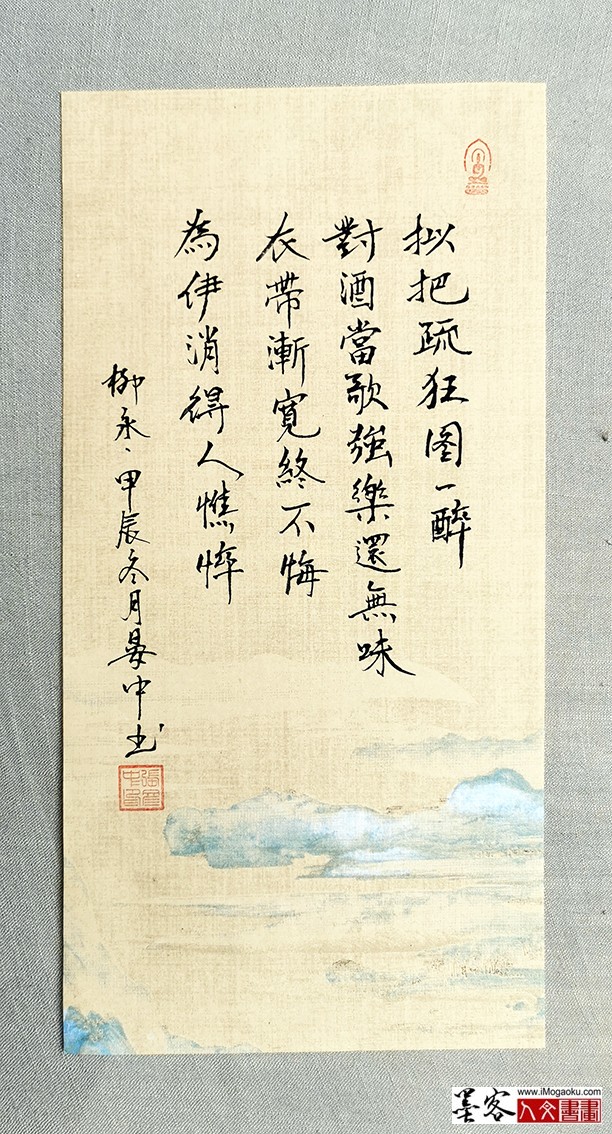 拟把疏狂图一醉
對酒當歌強樂還無味
衣帶漸寬終不悔
為伊消得人憔悴
柳永、甲辰冬月晏中书
墨客
www.iMogaoku.com
人文書畫